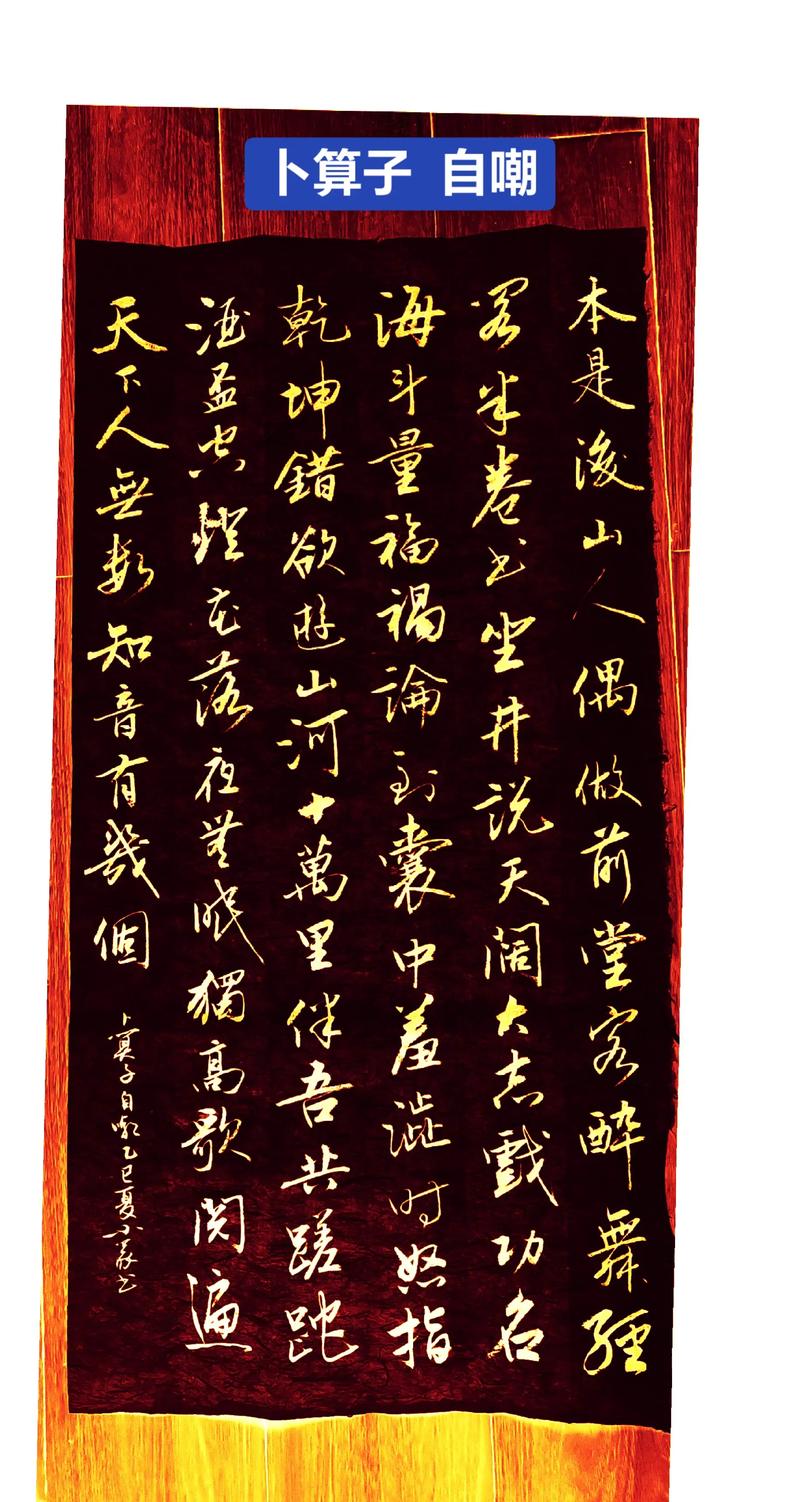 卜算子 自嘲
本是後山人偶做前堂客醉舞經
閣半卷书坐井説天闊大志戲功名
海斗量福禍論到囊中羞澁时怒指
乾坤錯欲遊山河十萬里伴吾共蹉跎
酒盃空燈花落夜無眠獨高歌閱遍
天下人無數知音有幾個
卜算子自嘲乙巳夏小